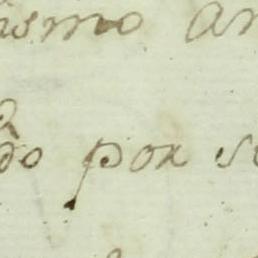 ismo an
do por s